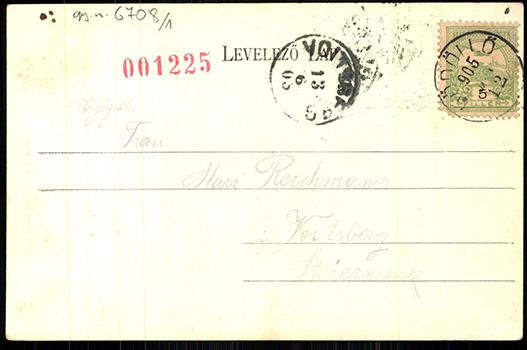 gy. n. 6708/1
001225
LEVELEZŐ LAP
VOITSBERG
13
6
05
GÖDÖLLŐ
905
5
FILLER
Frau
Mari Reichmann
in Voitsberg
Steiermark